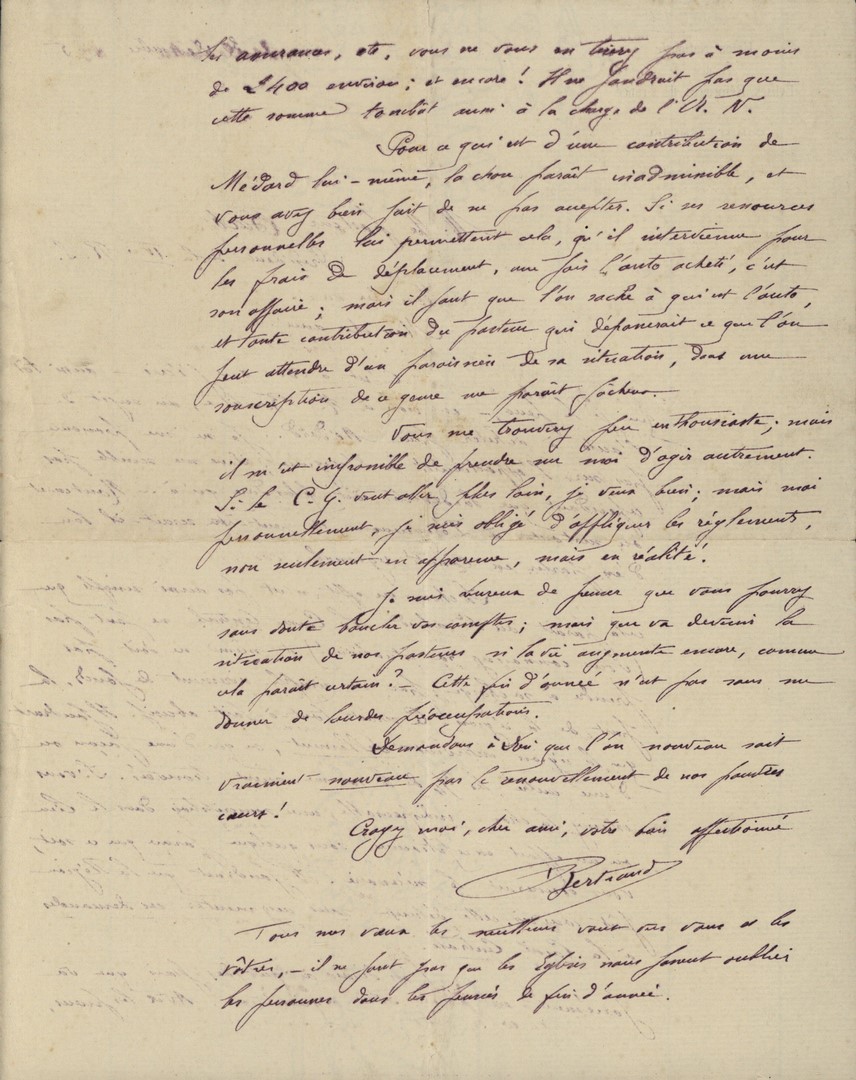 les assurances, etc, vous ne vous en tirez pas à moins
de 2400 environ; et encore! Il ne faudrait pas que
cette somme tombât aussi à la charge de l'U. N.
Pour ce qui est d'une contribution de
Médard lui-même, la chose paraît inadmissible, et
vous avez bien fait de ne pas accepter. Si ses ressources
personnelles lui permettent cela, qu'il intervienne pour
les frais de déplacement, une fois l'auto acheté, c'est
son affaire; mais il faut que l'on sache à qui est l'auto,
et toute contribution du pasteur qui dépasserait ce que l'on
peut attendre d'un paroissien de sa situation, dans une
souscription de ce genre me paraît fâcheux.
Vous me trouvez peu enthousiaste; mais
il m'est impossible de prendre sur moi d'agir autrement.
Si le C. G. veut aller plus loin, je veux bien; mais moi
personnellement, je suis obligé d'appliquer les règlements,
non seulement en apparence, mais en réalité!
Je suis heureux de penser que vous pourrez
sans doute boucler vos comptes; mais que va devenir la
situation de nos pasteurs si la vie augmente encore, comme
cela paraît certain? — Cette fin d'année n'est pas sans me
donner de lourdes préoccupations.
Demandons à Dieu que l'an nouveau soit
vraiment nouveau par le renouvellement de nos pauvres
cœurs!
Croyez moi, cher ami, votre bien affectionné
Bertrand
Tous mes vœux les meilleurs pour vous et les
vôtres, — il ne faut pas que les Eglises nous fassent oublier
les personnes dans les pensées de fin d'année.